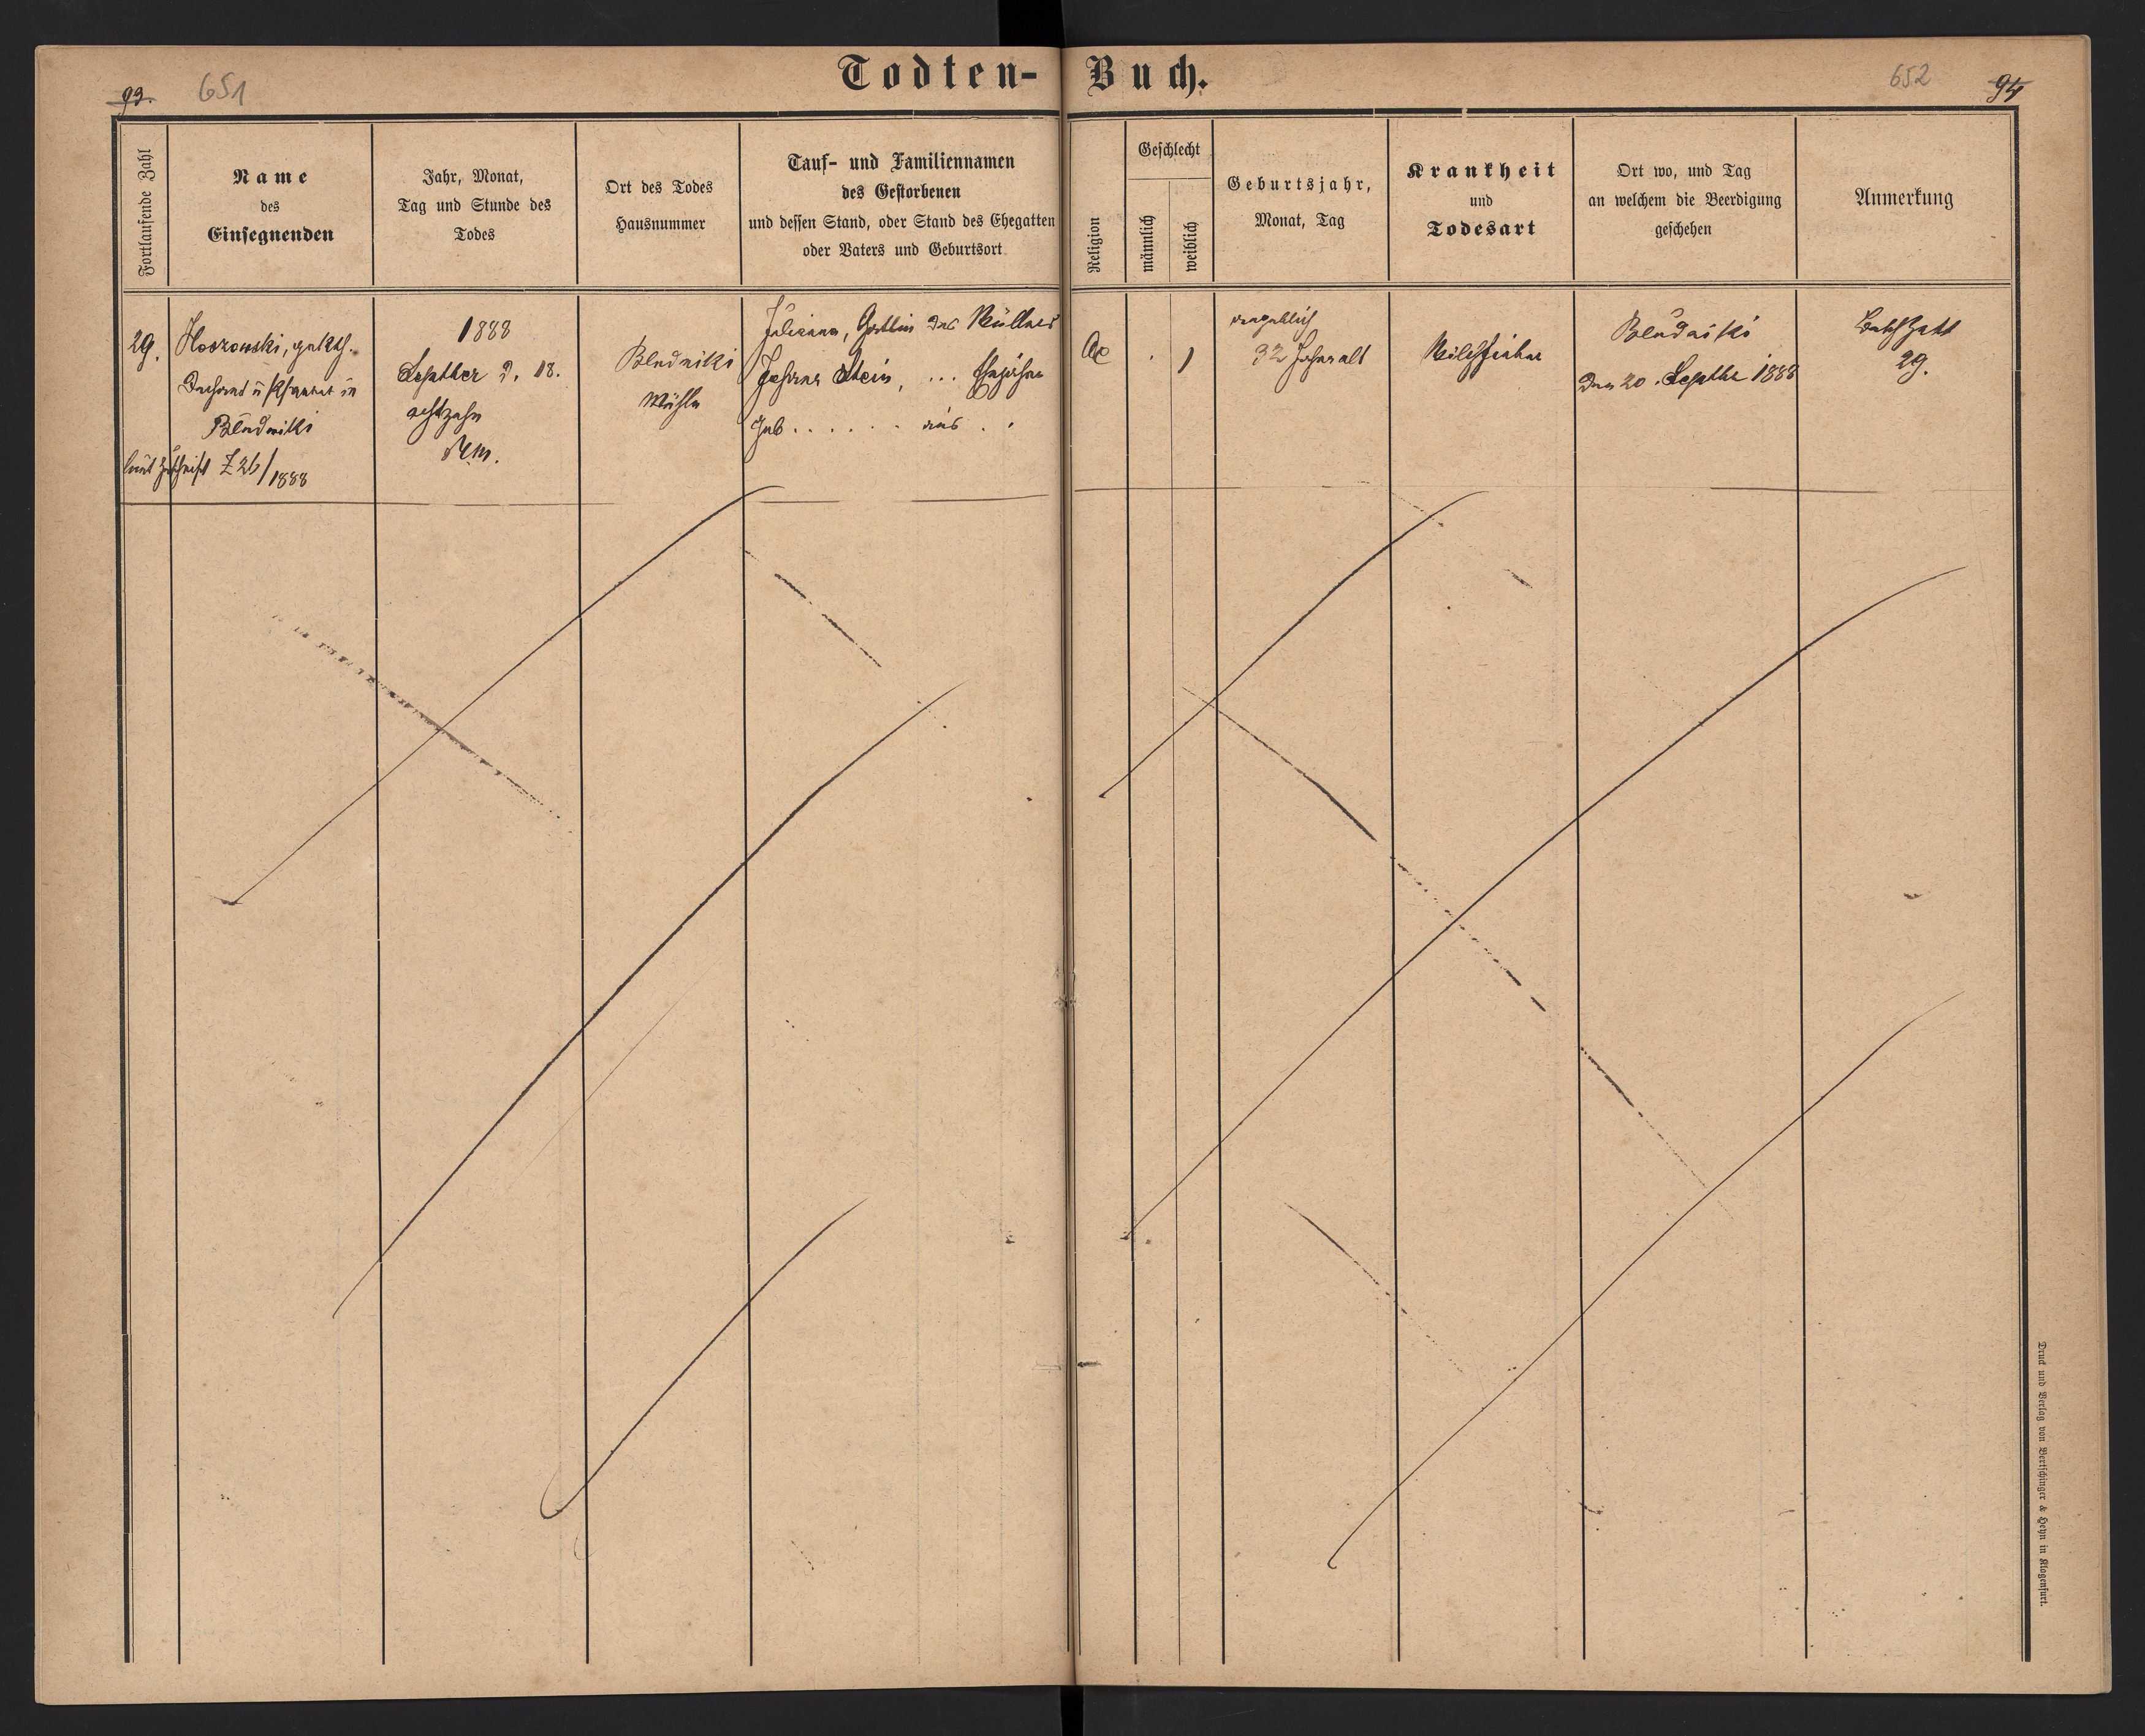 Todten-Buch.
93. 651
652 94
Fortlaufende Zahl
Name
des
Einsegnenden
Jahr, Monat,
Tag und Stunde des
Todes
Ort des Todes
Hausnummer
Tauf- und Familiennamen
des Gestorbenen
und dessen Stand, oder Stand des Ehegatten
oder Vaters und Geburtsort
Religion
Geschlecht
männlich
weiblich
Geburtsjahr,
Monat, Tag
Krankheit
und
Todesart
Ort wo, und Tag
an welchem die Beerdigung
geschehen
Anmerkung
29.
Hoszowski, gr. kth.
Dechant u Pfarrer in
Bludniki
laut Zuschrift Z 26/1888
1888
September d. 18.
achtzehn
Bludniki
Mühle
Juliana, Gattin des Müllers
Johann Stein, ...
geb. . . . . . . aus . .
.
1
angeblich
32 Jahre alt
Milchfieber
Bludniki
den 20. Septbr 1888
29.
Druck und Verlag von Bertschinger & Heyn in Klagenfurt.